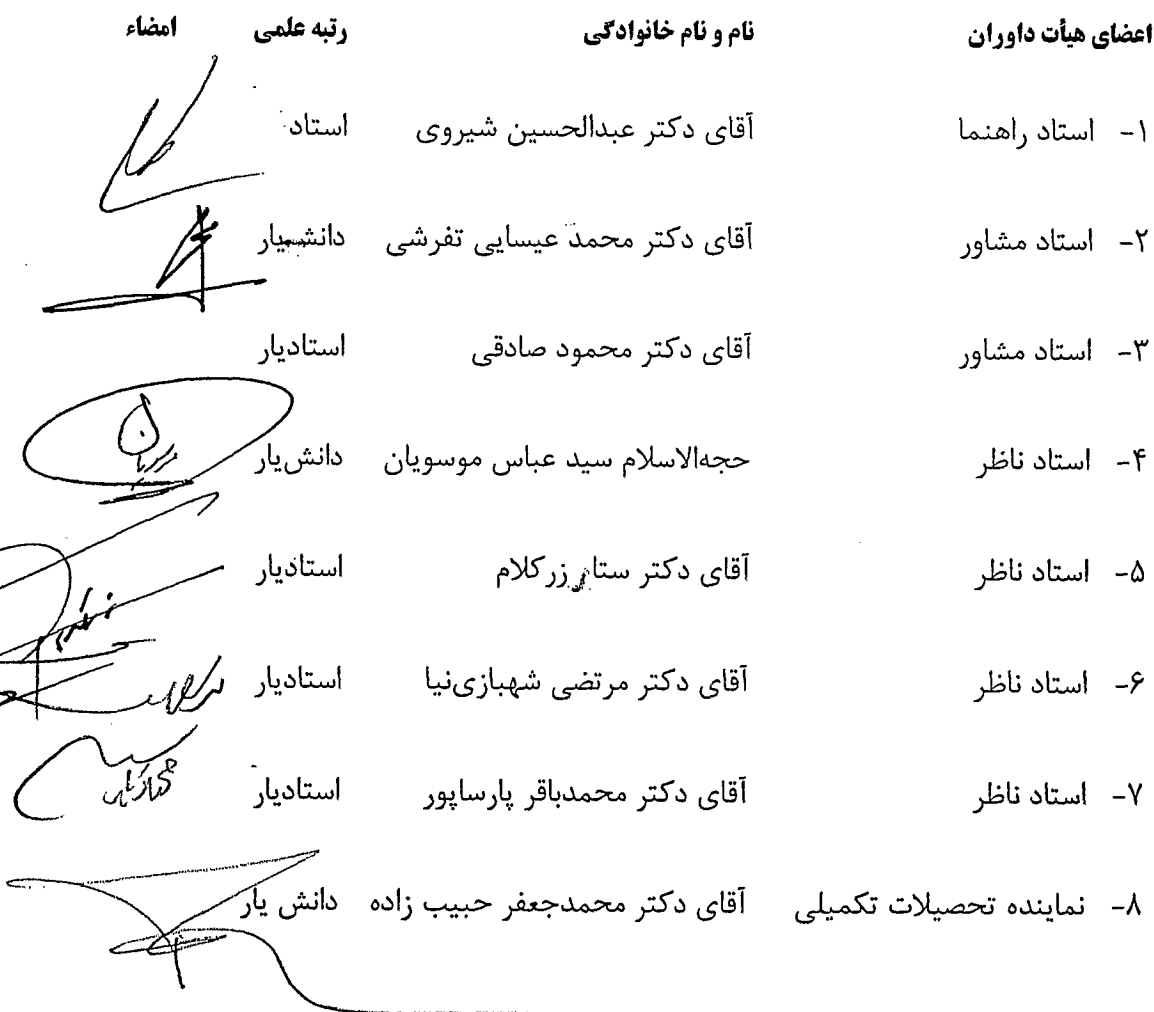 اعضای هیأت داوران نام و نام خانوادگی رتبه علمی امضاء
۱- استاد راهنما آقای دکتر عبدالحسین شیروی استاد
۲- استاد مشاور آقای دکتر محمد عیسایی تفرشی دانشیار
۳- استاد مشاور آقای دکتر محمود صادقی استادیار
۴- استاد ناظر حجه‌الاسلام سید عباس موسویان دانش‌یار
۵- استاد ناظر آقای دکتر ستار زرکلام استادیار
۶- استاد ناظر آقای دکتر مرتضی شهبازی‌نیا استادیار
۷- استاد ناظر آقای دکتر محمدباقر پارساپور استادیار
۸- نماینده تحصیلات تکمیلی آقای دکتر محمدجعفر حبیب زاده دانش یار